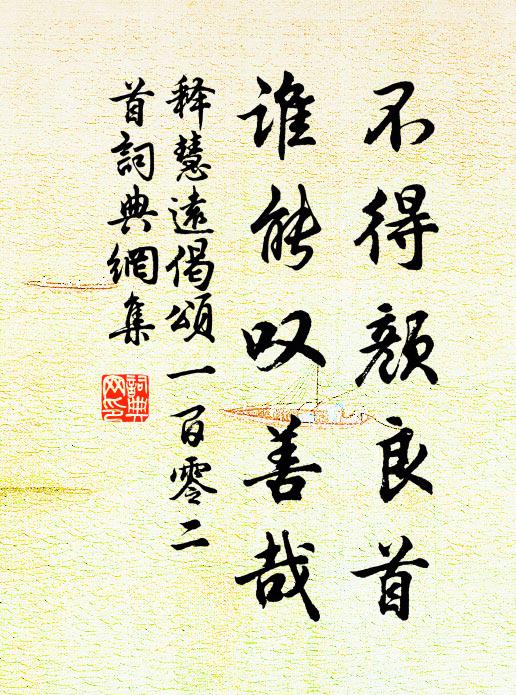 不得颜良首
谁能叹善哉
释慧遠偈頌一百零二
首詞典網集
詞典
网印